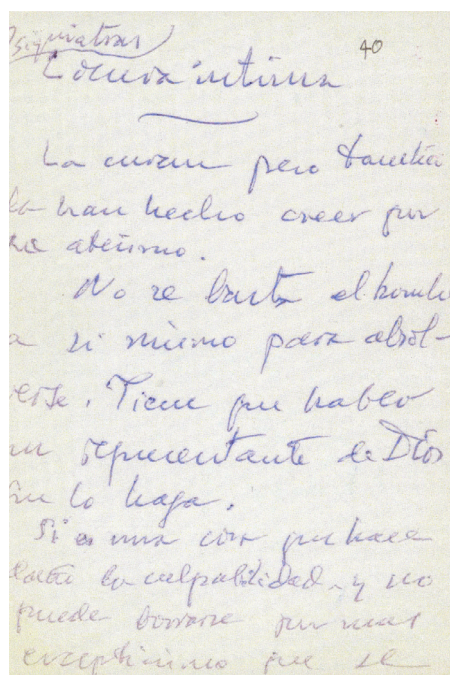 Psiquiatras
40
Locura íntima
La curan pero también
la han hecho creer por
su ateísmo.
No se basta el hombre
a si mismo para absol-
verse. Tiene que haber
un representante de Dios
que lo haga.
Si a una cosa que hace
la culpabilidad y no
puede borrarse por mas
escepticismo que se